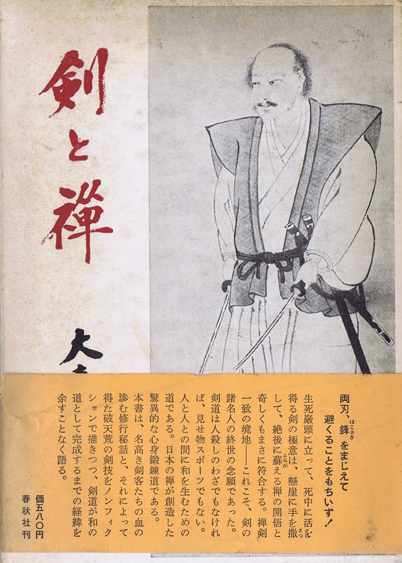 剣と禪
大
両刃、鋒をまじえて
避くることをもちいず！
生死巌頭に立って、死中に活を
得る剣の極意は、懸崖に手を撒
して、絶後に蘇える禅の開悟と
奇しくもまさに符合する。禅剣
一致の境地――これこそ、剣の
諸名人の終世の念願であった。
剣道は人殺しのわざでもなけれ
ば、見せ物スポーツでもない。
人と人との間に和を生むための
道である。日本の禅が創造した
驚異的な心身鍛錬道である。
本書は、名高き剣客たちの血の
滲む修行秘話と、それによって
得た破天荒の剣技をノンフィク
ションで描きつつ、剣道が和の
道として完成するまでの経緯を
余すことなく語る。
春秋社刊
価五八〇円